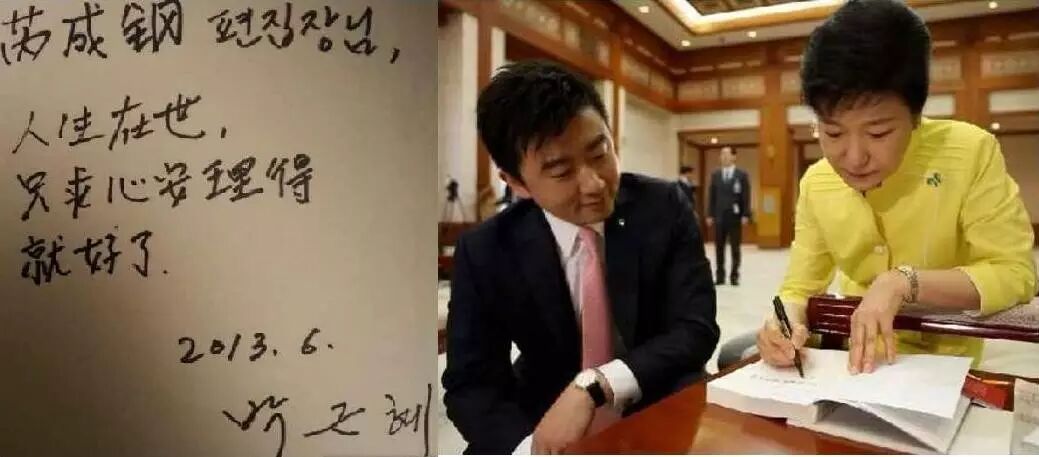 芮成鋼 편집장님,
人生在世,
只求心安理得
就好了.
2013. 6.
박근혜